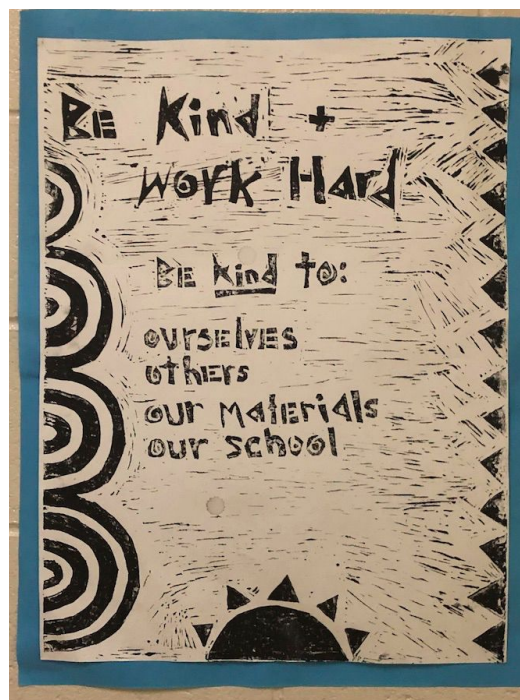 BE Kind +
Work Hard
BE kind to:
ourselves
others
our materials
our school